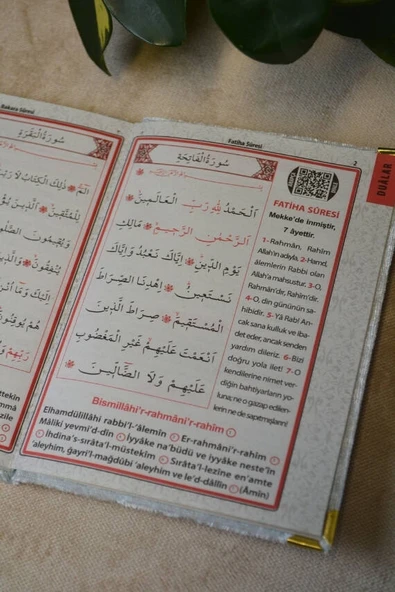 Bakara Sûresi
سُورَةُ الْبَقَرَةِ
الٓمٓ ذٰلِكَ الْكِتَابُ لَا رَيْبَ
لِلْمُتَّقِينَ الَّذِينَ
وَيُقِيمُونَ الصَّلٰوةَ
يُنْفِقُونَ وَالَّذِينَ
اِلَيْكَ وَمَا اُنْزِلَ
هُمْ يُوقِنُونَ
رَبِّهِمْ
Fatiha Sûresi
2
DUALAR
سُورَةُ الْفَاتِحَةِ
اَلْحَمْدُ لِلّٰهِ رَبِّ الْعَالَمِينَ
اَلرَّحْمٰنِ الرَّحِيمِ مَالِكِ
يَوْمِ الدِّينِ اِيَّاكَ نَعْبُدُ وَاِيَّاكَ
نَسْتَعِينُ اِهْدِنَا الصِّرَاطَ
الْمُسْتَقِيمَ صِرَاطَ الَّذِينَ
اَنْعَمْتَ عَلَيْهِمْ غَيْرِ الْمَغْضُوبِ
عَلَيْهِمْ وَلَا الضَّالِّينَ
FATİHA SÛRESİ
Mekke'de inmiştir,
7 âyettir.
1- Rahmân, Rahîm
Allah'ın adıyla. 2-Hamd,
âlemlerin Rabbi olan
Allah'a mahsustur. 3-O,
Rahmân'dır, Rahîm'dir.
4-O, din gününün sa-
hibidir. 5- Yâ Rabi An-
cak sana kulluk ve iba-
det eder, ancak senden
yardım dileriz. 6-Bizi
doğru yola ilet! 7-O
kendilerine nimet ver-
diğin bahtiyarların yo-
luna; ne o gazap edilen-
lerin ne de sapıtmışların!
Bismillâhi'r-rahmâni'r-rahîm
Elhamdülillâhi rabbi'l-'âlemîn Er-rahmâni'r-rahîm
Mâliki yevmi'd-dîn İyyâke na'büdü ve iyyâke neste'în
İhdina's-sırâta'l-müstekîm Sırâta'l-lezîne en'amte
aleyhim, ğayri'l-mağdûbi 'aleyhim ve le'd-dâllîn (Âmîn)